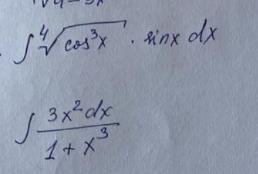 ∫ ∜(cos³x) · sinx dx
∫ 3x²dx / (1 + x³)